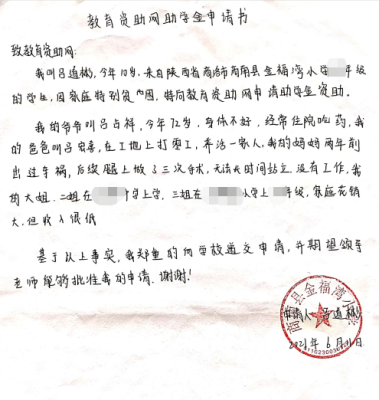 教育资助网助学金申请书
致教育资助网:
我叫吕道彬,今年10岁,来自陕西省商洛市商南县金福湾小学 年级
的学生,因家庭特别贫困,特向教育资助网申请助学金资助。
我的爷爷叫吕占祥,今年72岁,身体不好,经常住院吃药,我
的爸爸叫吕宏,在工地上打零工,养活一家人,我的妈妈两年前
出过车祸,后续腿上做了三次手术,无法长时间站立,没有工作,我
的大姐、二姐在 中学上学,三姐在 小学上 年级,家庭花销
大,但收入很低
基于以上事实,我郑重的向学校递交申请,并期望领导
老师能够批准我的申请。谢谢!
商南县金福湾小学
申请人:吕道彬
2021年6月11日